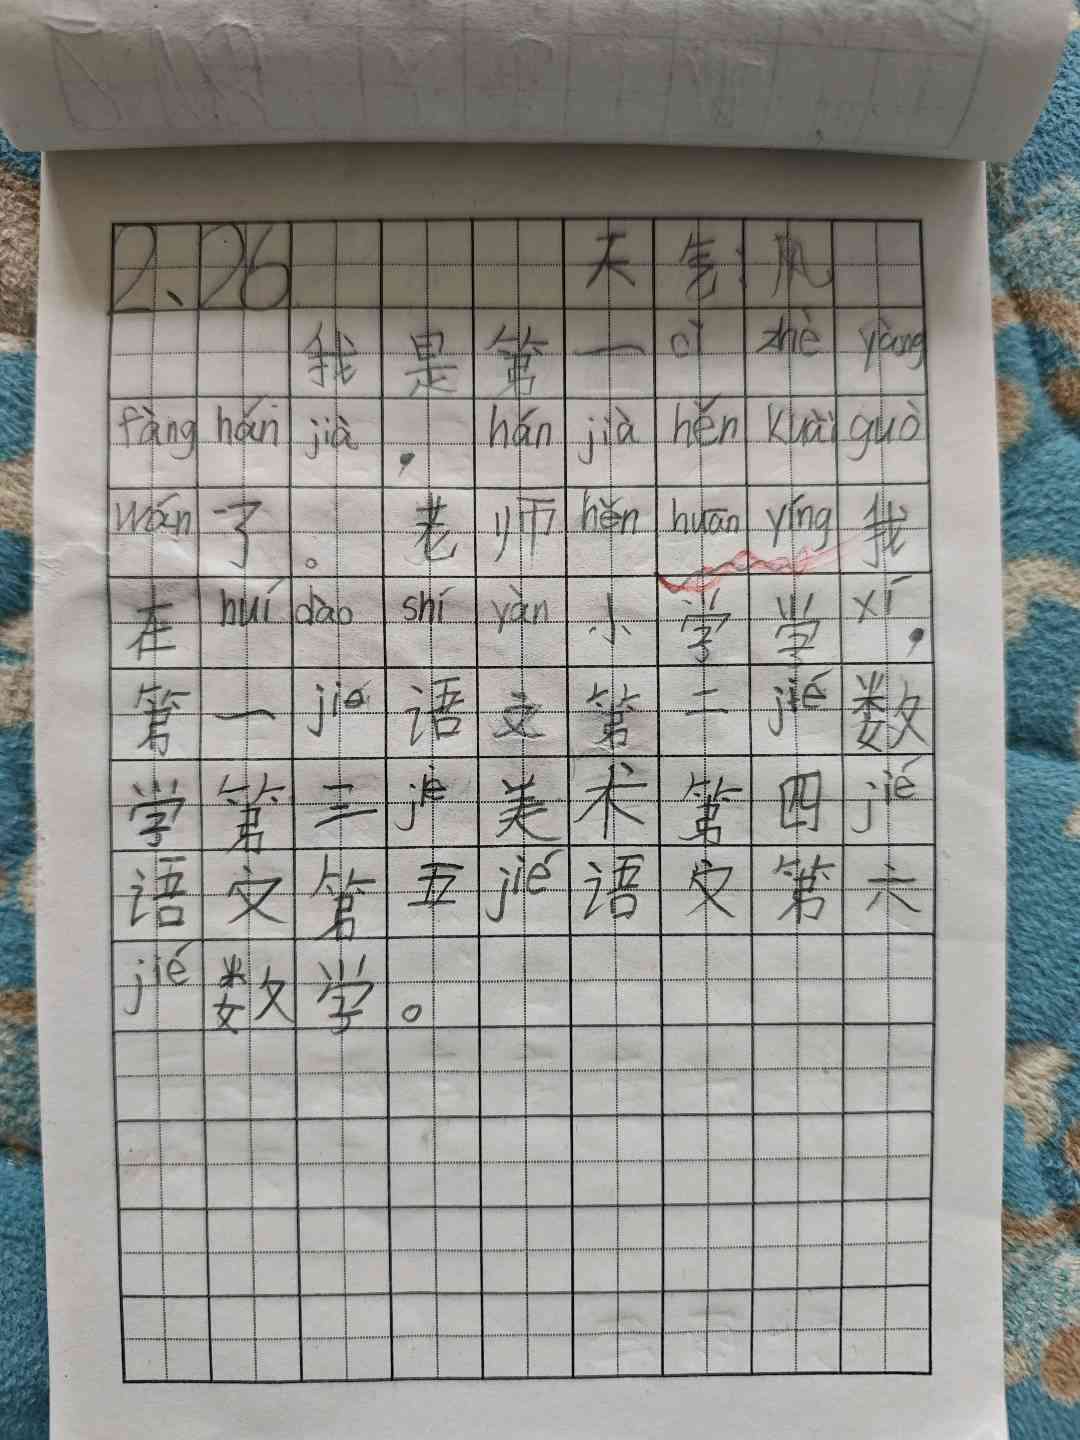 2、26 天气:风
我是第一cì zhè yàng
fàng hán jià，hán jià hěn kuài guò
wán了。老师hěn huān yíng我
在huí dào shí yàn小学学xí，
第一jié语文第二jié数
学第三jié美术第四jié
语文第五jié语文第六
jié数学。